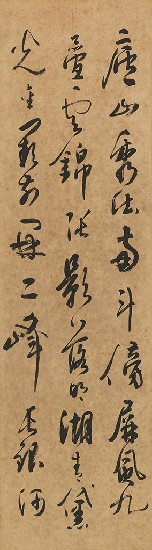 廬山秀出南斗傍屏風九
疊雲錦張影落明湖青黛
光金闕前開二峰長銀河